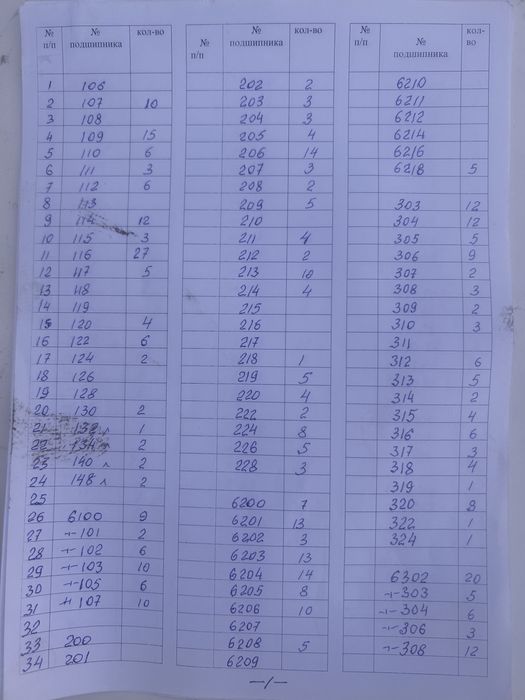 № п/п № подшипника кол-во
1 106
2 107 10
3 108
4 109 15
5 110 6
6 111 3
7 112 6
8 113
9 114 12
10 115 3
11 116 27
12 117 5
13 118
14 119
15 120 4
16 122 6
17 124 2
18 126
19 128
20 130 2
21 132 л 1
22 134 л 2
23 140 л 2
24 148 л 2
25
26 6100 9
27 -"-101 2
28 -"-102 6
29 -"-103 10
30 -"-105 6
31 -"-107 10
32
33 200
34 201
№ п/п № подшипника кол-во
202 2
203 3
204 3
205 4
206 14
207 3
208 2
209 5
210
211 4
212 2
213 10
214 4
215
216
217
218 1
219 5
220 4
222 2
224 8
226 5
228 3
6200 7
6201 13
6202 3
6203 13
6204 14
6205 8
6206 10
6207
6208 5
6209
№ п/п № подшипника кол-во
6210
6211
6212
6214
6216
6218 5
303 12
304 12
305 5
306 9
307 2
308 3
309 2
310 3
311
312 6
313 5
314 2
315 4
316 6
317 3
318 4
319 1
320 8
322 1
324 1
6302 20
-"-303 5
-"-304 6
-"-306 3
-"-308 12
-/-